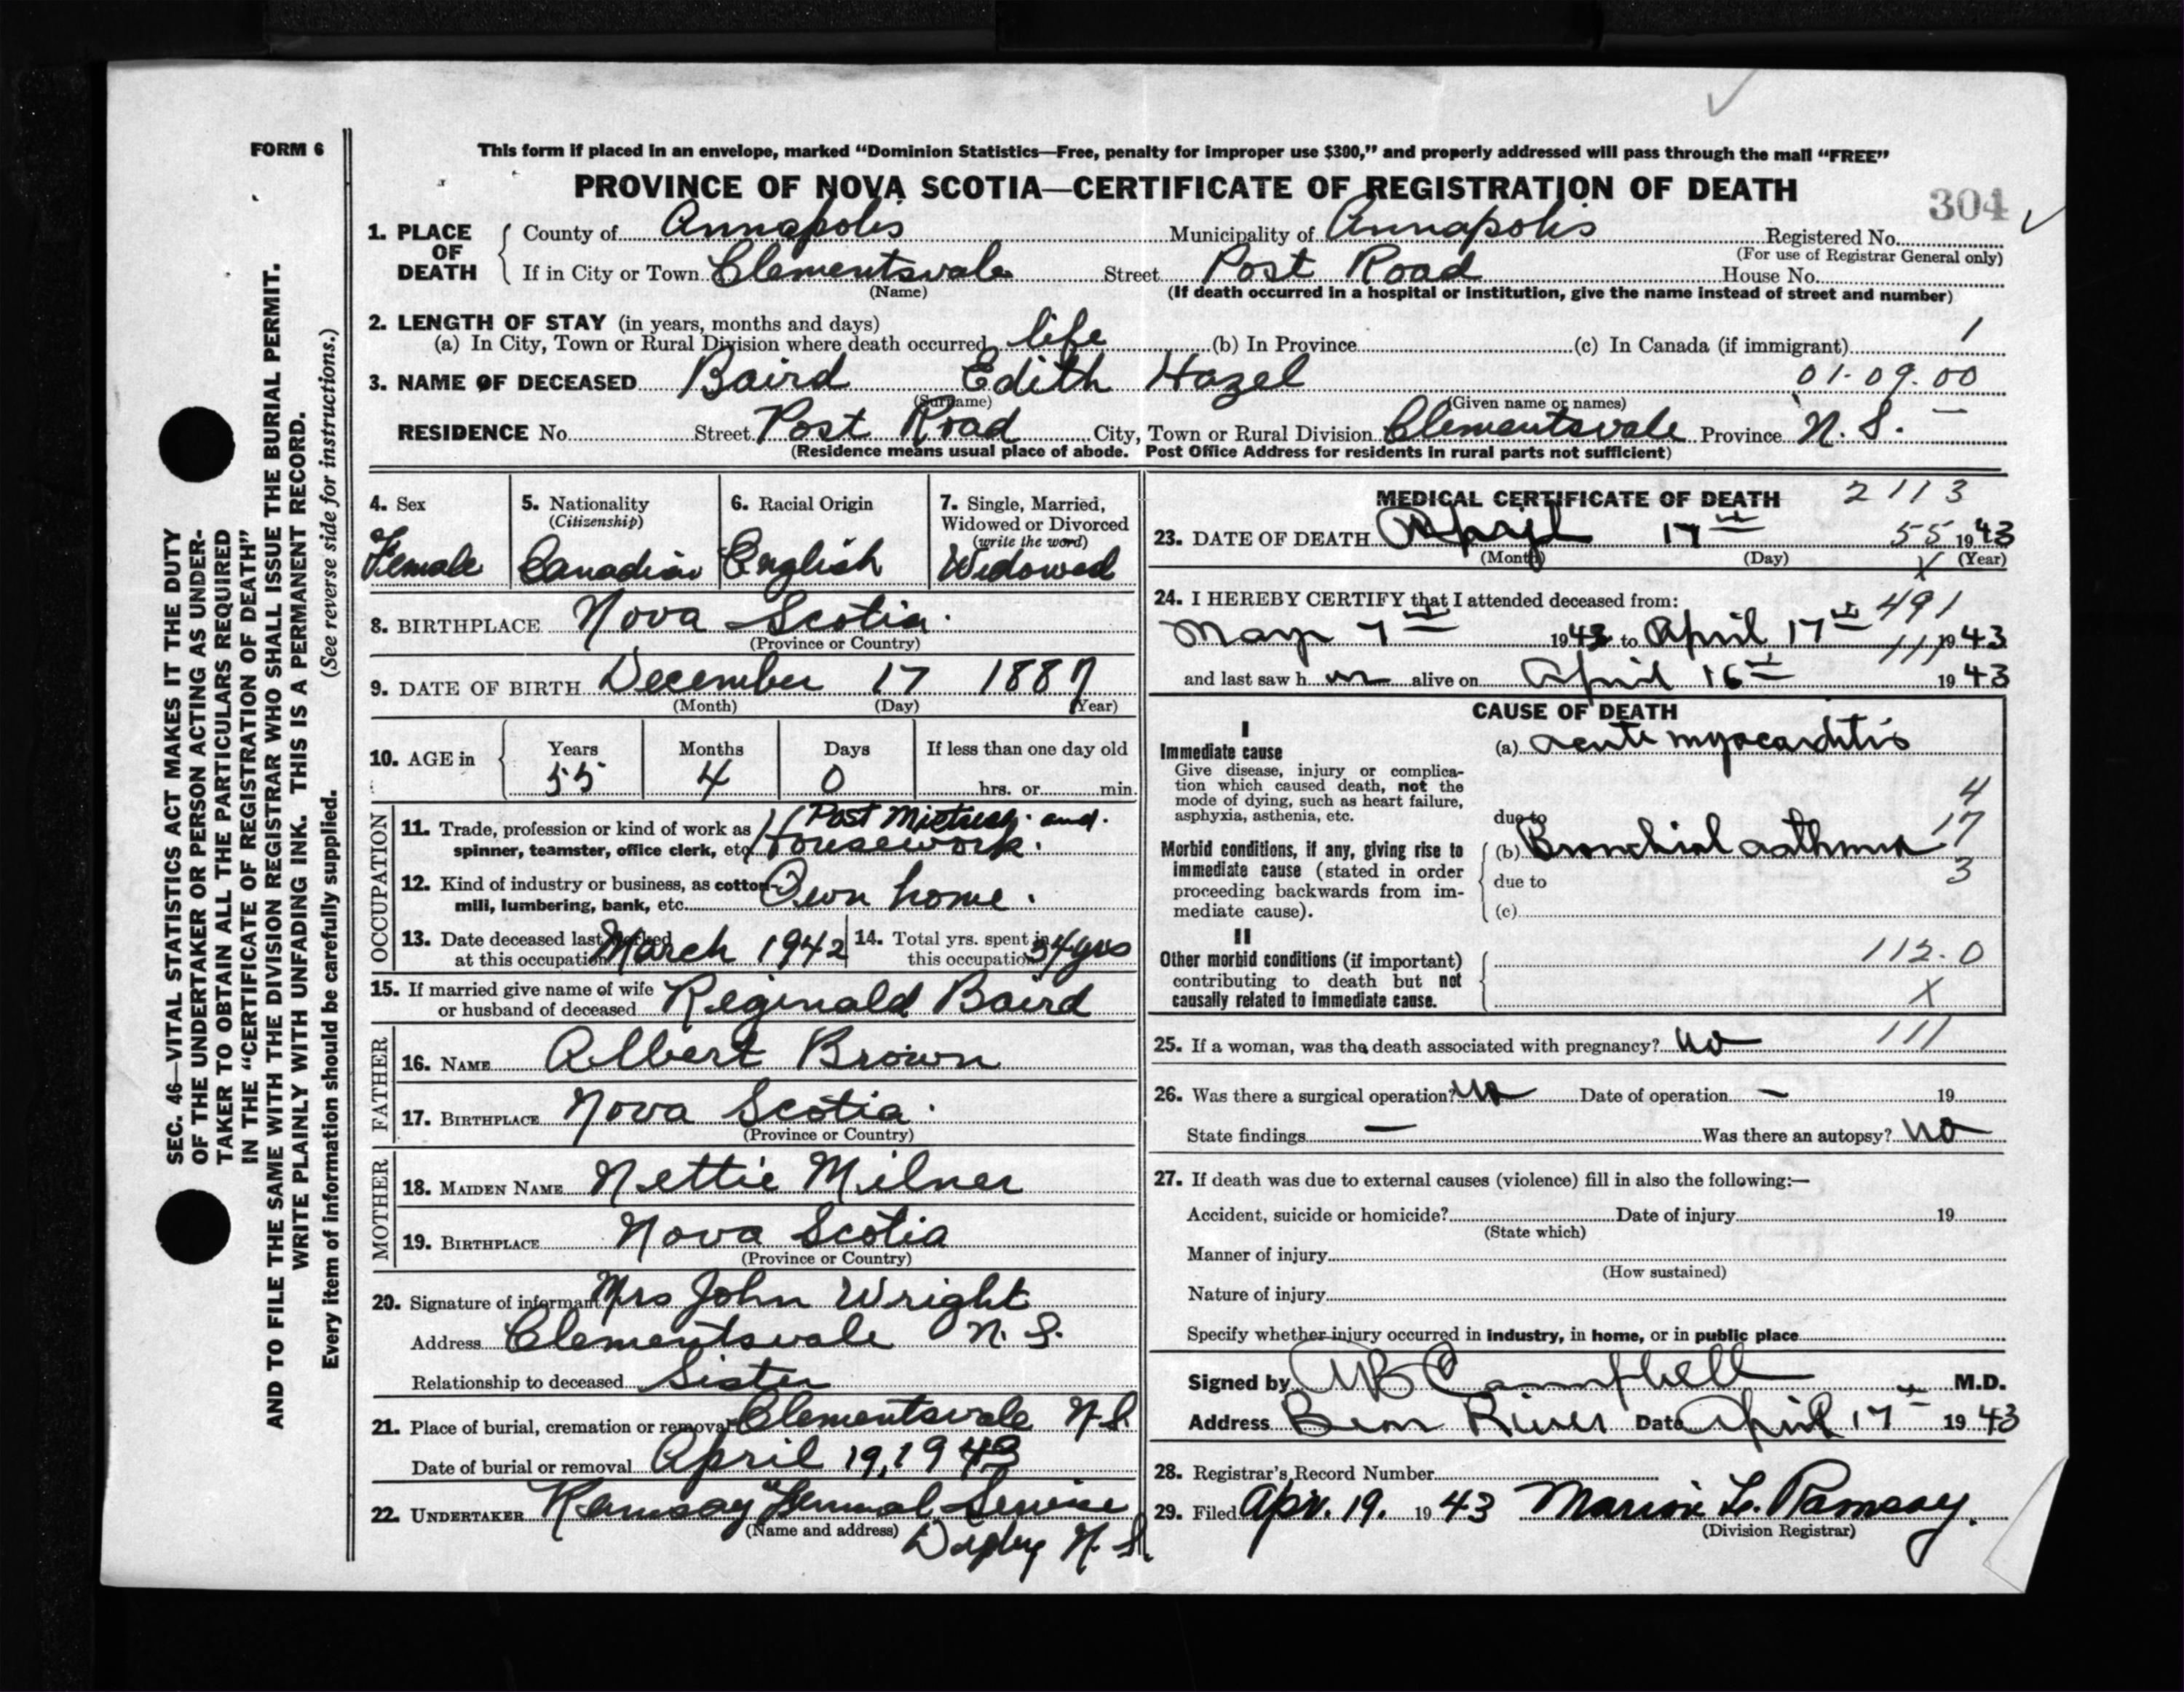 FORM 6
This form if placed in an envelope, marked “Dominion Statistics—Free, penalty for improper use $300,” and properly addressed will pass through the mail “FREE”
PROVINCE OF NOVA SCOTIA—CERTIFICATE OF REGISTRATION OF DEATH
304
1. PLACE OF DEATH
County of Annapolis Municipality of Annapolis Registered No.
(For use of Registrar General only)
If in City or Town Clementsvale Street Post Road House No.
(Name) (If death occurred in a hospital or institution, give the name instead of street and number)
2. LENGTH OF STAY (in years, months and days)
(a) In City, Town or Rural Division where death occurred life (b) In Province (c) In Canada (if immigrant) 1
3. NAME OF DECEASED Baird Edith Hazel 01.09.00
(Surname) (Given name or names)
RESIDENCE No. Street Post Road City, Town or Rural Division Clementsvale Province N. S.
(Residence means usual place of abode. Post Office Address for residents in rural parts not sufficient)
4. Sex
Female
5. Nationality
(Citizenship)
Canadian
6. Racial Origin
English
7. Single, Married,
Widowed or Divorced
(write the word)
Widowed
8. BIRTHPLACE Nova Scotia
(Province or Country)
9. DATE OF BIRTH December 17 1887
(Month) (Day) (Year)
10. AGE in
Years Months Days If less than one day old
55 4 0 hrs. or min.
OCCUPATION
11. Trade, profession or kind of work as Post Mistress and
spinner, teamster, office clerk, etc. Housework.
12. Kind of industry or business, as cotton
mill, lumbering, bank, etc. Own home.
13. Date deceased last worked
at this occupation March 1942
14. Total yrs. spent in
this occupation 34 yrs
15. If married give name of wife
or husband of deceased Reginald Baird
FATHER
16. NAME Albert Brown
17. BIRTHPLACE Nova Scotia
(Province or Country)
MOTHER
18. MAIDEN NAME Nettie Milner
19. BIRTHPLACE Nova Scotia
(Province or Country)
20. Signature of informant Mrs John Wright
Address Clementsvale N. S.
Relationship to deceased Sister
21. Place of burial, cremation or removal Clementsvale N.S.
Date of burial or removal April 19, 1943
22. UNDERTAKER Ramsay Funeral Service
(Name and address) Digby N. S.
MEDICAL CERTIFICATE OF DEATH 2113
23. DATE OF DEATH April 17th 55 1943
(Month) (Day) (Year)
X
24. I HEREBY CERTIFY that I attended deceased from: 491
May 7th 1943 to April 17th 1943
111
and last saw her alive on April 16th 1943
CAUSE OF DEATH
I
Immediate cause
Give disease, injury or complica-
tion which caused death, not the
mode of dying, such as heart failure,
asphyxia, asthenia, etc.
(a) acute myocarditis
4
due to
17
Morbid conditions, if any, giving rise to
immediate cause (stated in order
proceeding backwards from im-
mediate cause).
(b) Bronchial asthma
due to 3
(c)
II
Other morbid conditions (if important)
contributing to death but not
causally related to immediate cause.
112.0
X
25. If a woman, was the death associated with pregnancy? no 111
26. Was there a surgical operation? no Date of operation — 19
State findings — Was there an autopsy? no
27. If death was due to external causes (violence) fill in also the following:—
Accident, suicide or homicide? Date of injury 19
(State which)
Manner of injury
(How sustained)
Nature of injury
Specify whether injury occurred in industry, in home, or in public place
Signed by AB Campbell M.D.
Address Bear River Date April 17th 1943
28. Registrar's Record Number
29. Filed Apr. 19. 1943 Marion L. Ramsay.
(Division Registrar)
SEC. 46—VITAL STATISTICS ACT MAKES IT THE DUTY
OF THE UNDERTAKER OR PERSON ACTING AS UNDER-
TAKER TO OBTAIN ALL THE PARTICULARS REQUIRED
IN THE “CERTIFICATE OF REGISTRATION OF DEATH”
AND TO FILE THE SAME WITH THE DIVISION REGISTRAR WHO SHALL ISSUE THE BURIAL PERMIT.
WRITE PLAINLY WITH UNFADING INK. THIS IS A PERMANENT RECORD.
Every item of information should be carefully supplied. (See reverse side for instructions.)